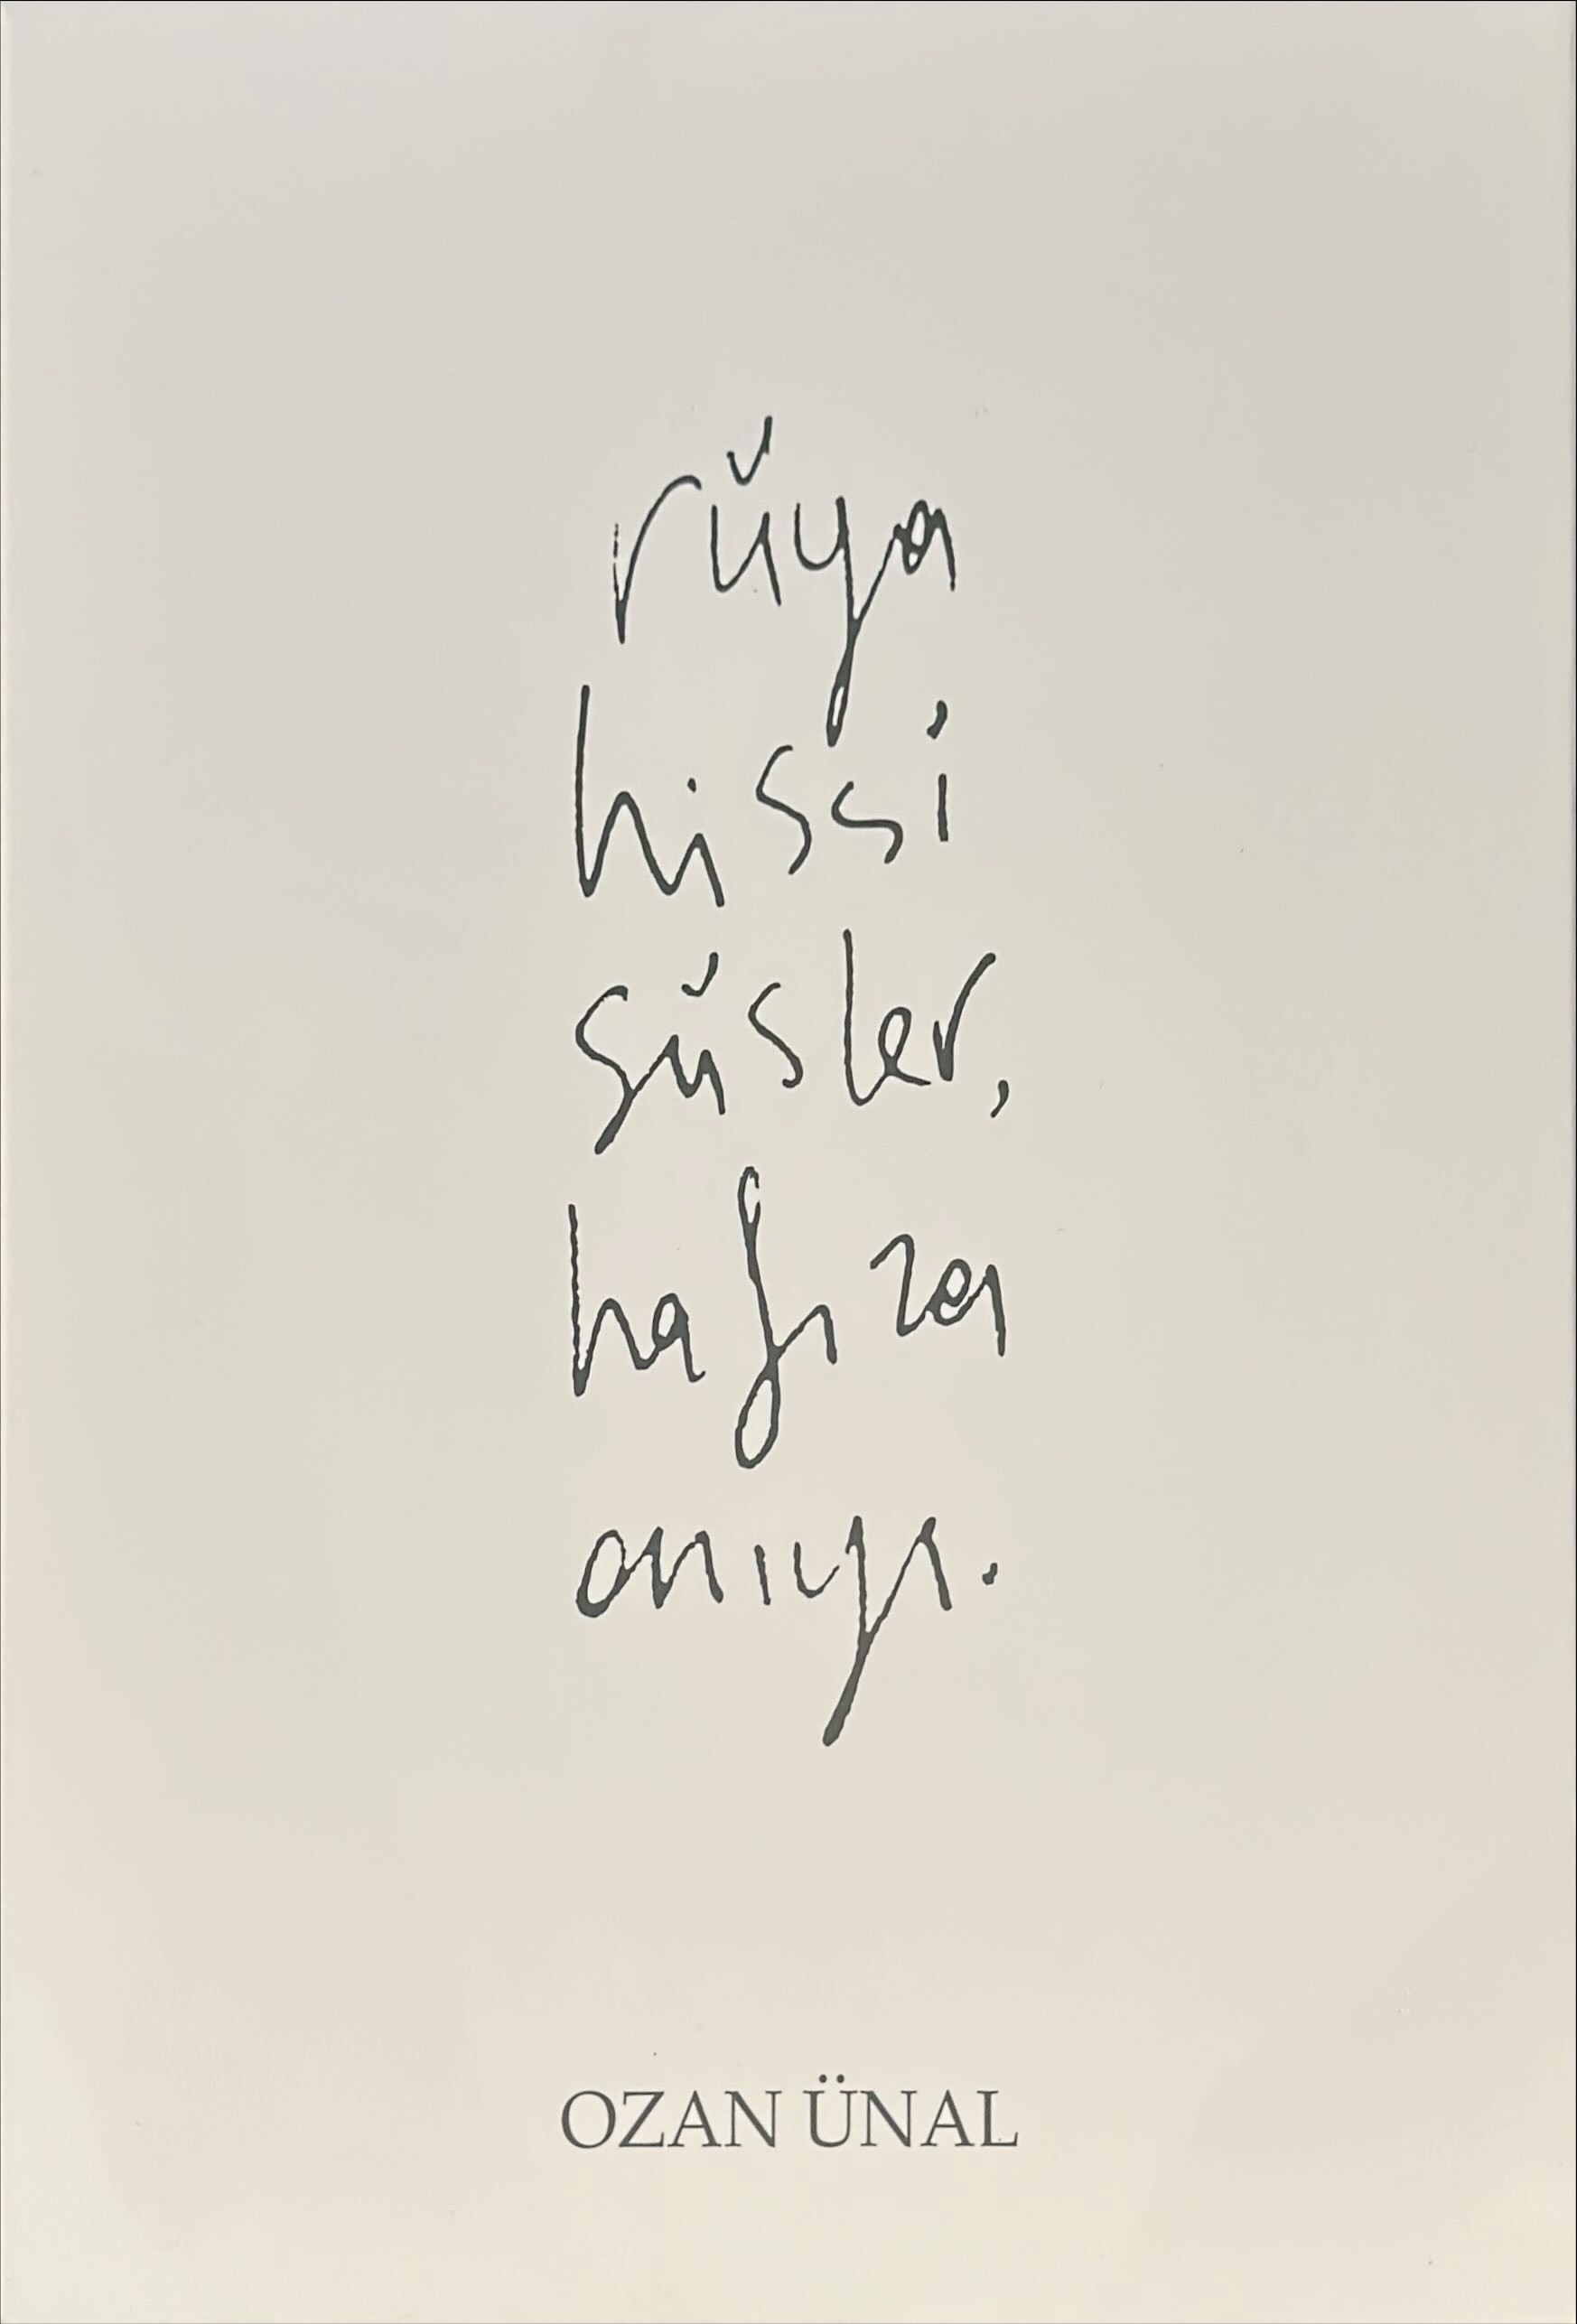 rüya
hissi
süsler,
hafıza
anıyı.
OZAN ÜNAL